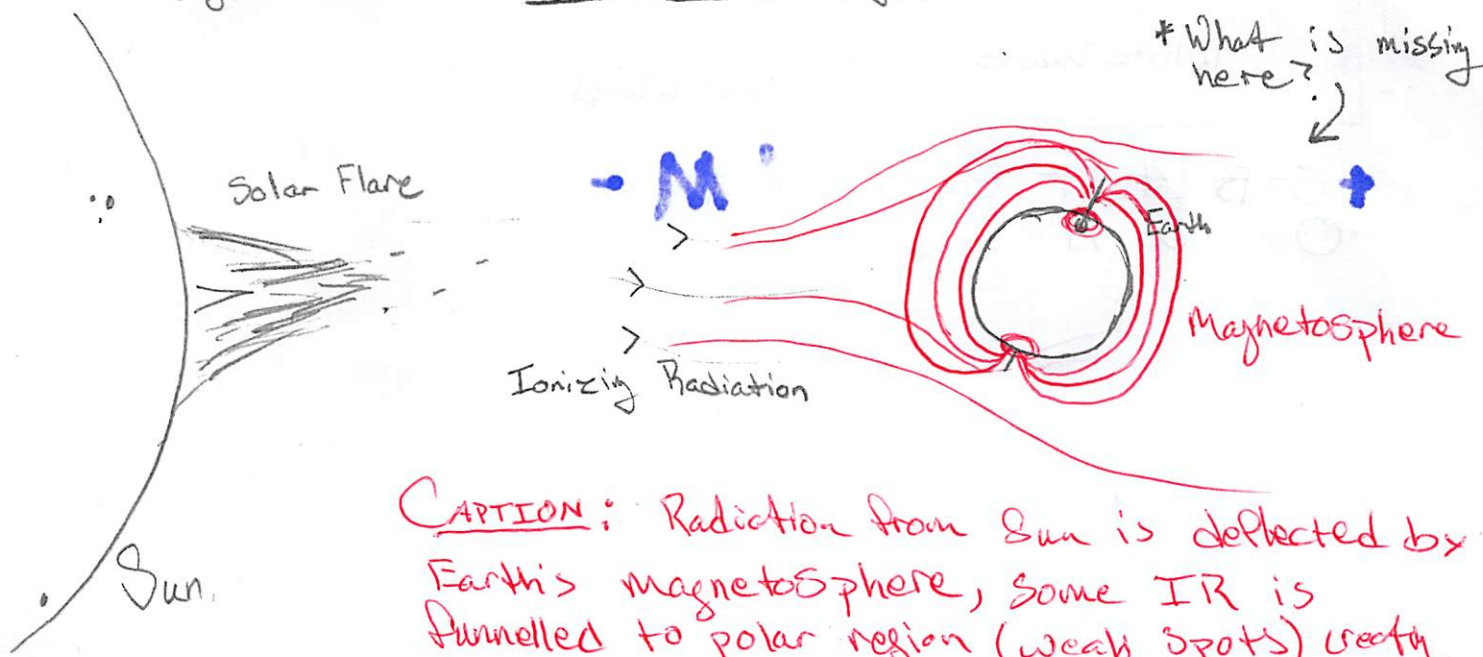 * What is missing
here?
Solar Flare
- M
+
Earth
Magnetosphere
Ionizig Radiation
Sun.
CAPTION: Radiation from Sun is deflected by
Earth's magnetosphere, some IR is
funnelled to polar region (weak spots)